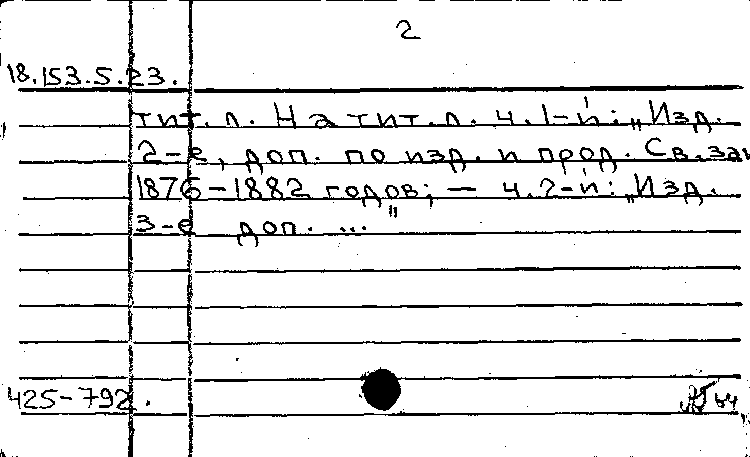 2
18.153.5.23.
тит. л. На тит. л. ч. 1-й: „Изд.
2-е, доп. по изд. и прод. Св. зак
1876-1882 годов; — ч. 2-й: „Изд.
3-е доп. ..."
425-792.